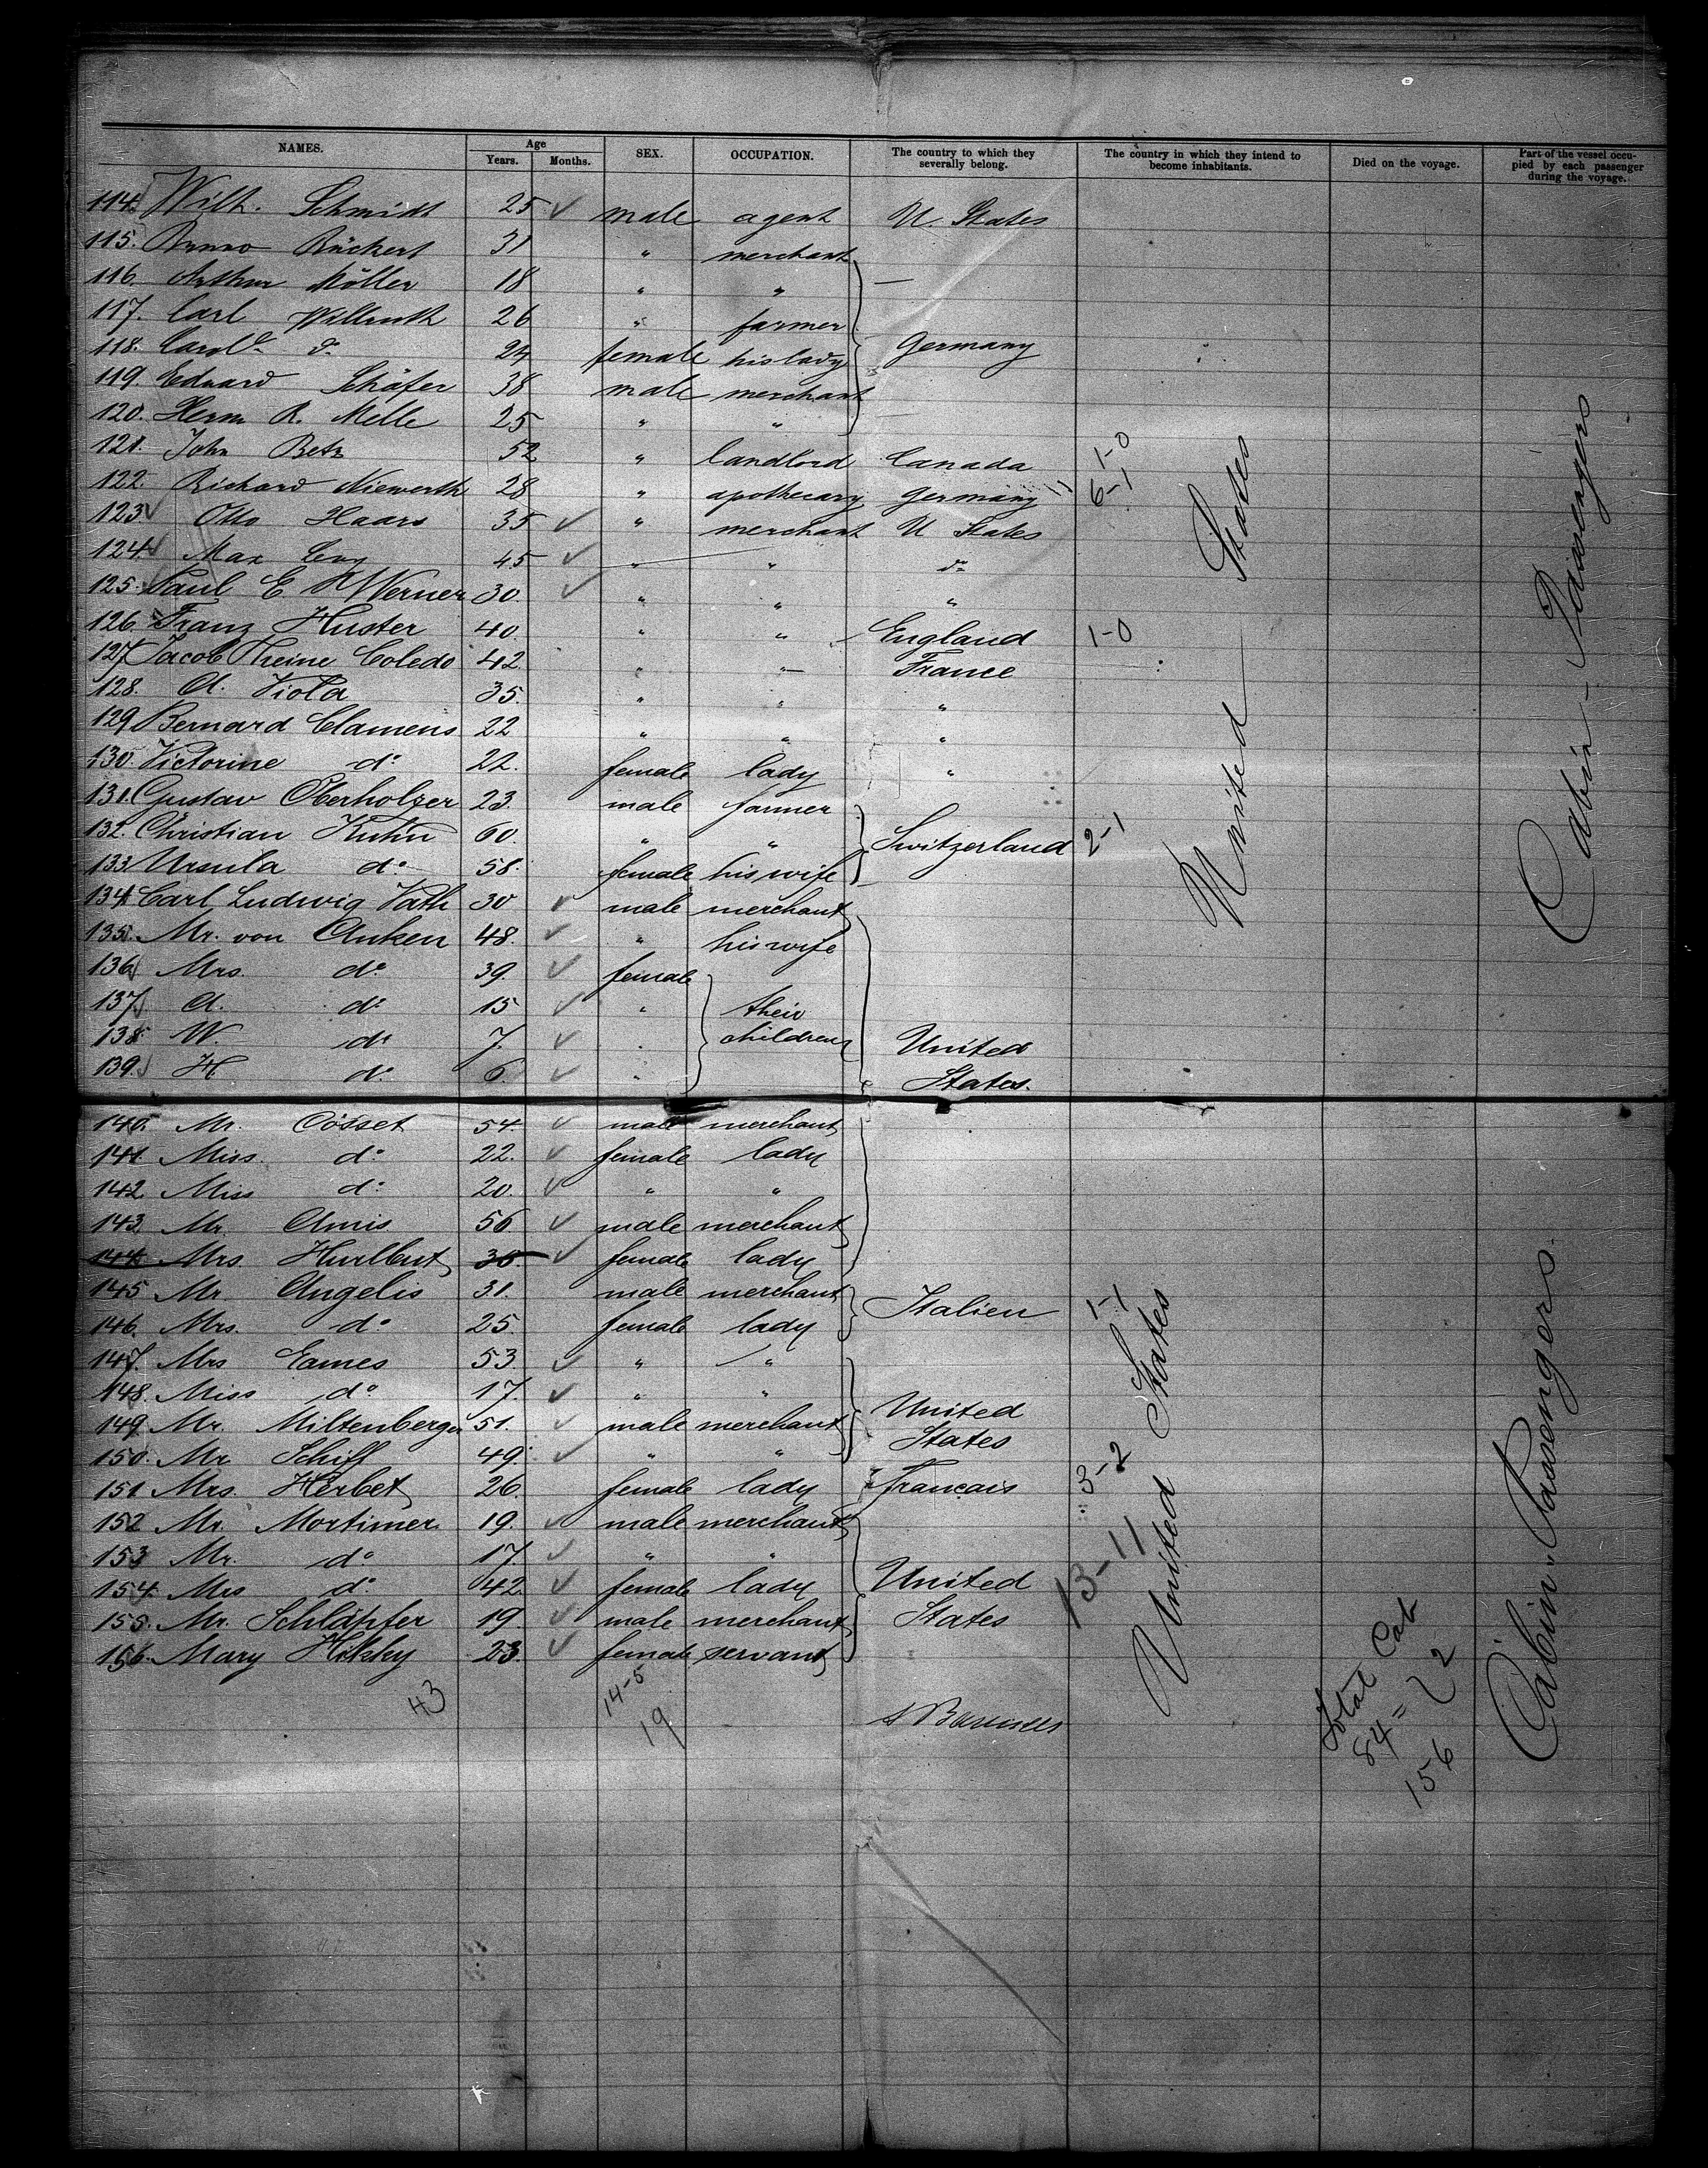 NAMES. Age Years. Months. SEX. OCCUPATION. The country to which they severally belong. The country in which they intend to become inhabitants. Died on the voyage. Part of the vessel occupied by each passenger during the voyage.
114. Wilh. Schmidt 25 ✓ male agent U. States
115. Bruno Rückert 31 " merchant
116. Arthur Möller 18 " " —
117. Carl Willruth 26 " farmer
118. Carol^e d^o 24 female his lady Germany
119. Eduard Schäfer 38 male merchant
120. Herm R. Melle 25 " "
121. John Betz 52 " landlord Canada 1-0
122. Richard Niewerth 28 " apothecary Germany 11 6-1
123 Otto Haars 35 ✓ " merchant U States
124 Max Levy 45 ✓ " " do
125. Paul E. H Werner 30. ✓ " " "
126. Franz Huster 40. " " England 1-0
127 Jacob Heine Coledo 42 " " France
128. A. Viola 35. " " "
129 Bernard Clamens 22 " " "
130. Victorine do 22. female lady "
131. Gustav Oberholzer 23. male farmer
132. Christian Kuhn 60. " " Switzerland 2-1
133 Ursula do 58. female his wife
134 Carl Ludwig Vath 30 ✓ male merchant
135. Mr. von Anken 48. ✓ " his wife
136 Mrs. do 39. ✓ female
137 A. do 15 ✓ " their
138 W. do 7. ✓ " children United
139. H do 6. ✓ " States.
United States
Cabin - Passengers
140. Mr. Cosset 54. ✓ male merchant
141. Miss. do 22. ✓ female lady
142 Miss do 20. ✓ " "
143. Mr. Amis 56 ✓ male merchant
144 Mrs. Hurlbut 36. ✓ female lady
145 Mr. Angelis 31. male merchant Italien 1-1
146. Mrs. do 25. female lady
147. Mrs Eames 53. ✓ " "
148. Miss do 17. ✓ " " United
149. Mr. Miltenberger 51. ✓ male merchant States
150. Mr Schiff 49. ✓ " "
151 Mrs. Herbet 26 female lady Francais 3-2
152 Mr. Mortimer 19. ✓ male merchant
153 Mr. do 17. ✓ " " 13-11
154. Mrs do 42. ✓ female lady United
155. Mr. Schläpfer 19. ✓ male merchant States
156. Mary Hikky 23. ✓ female servant
United States
Cabin Passengers.
43 14-5
19
Total Cab
84 = 72
156